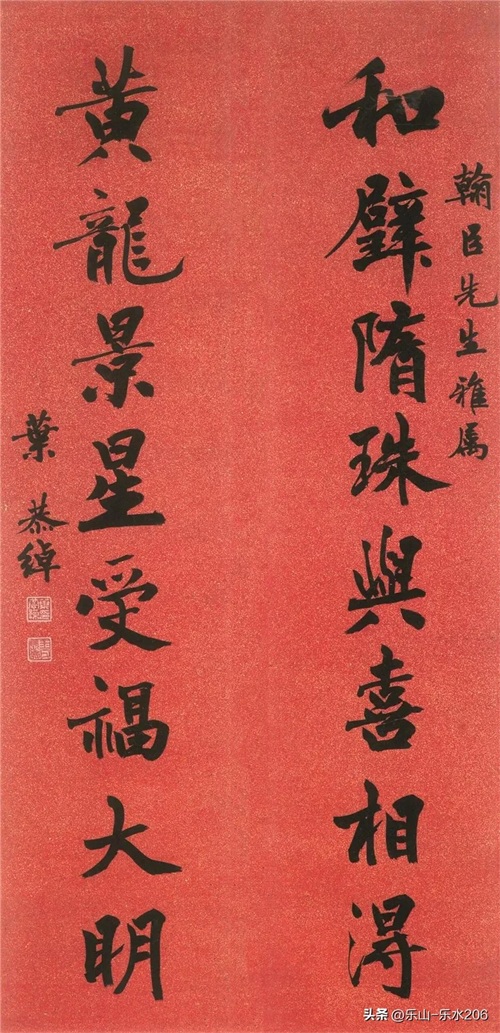 翰臣先生雅属
和璧隋珠與喜相得
黄龍景星受福大明
葉恭绰
头条 @乐山-乐水206